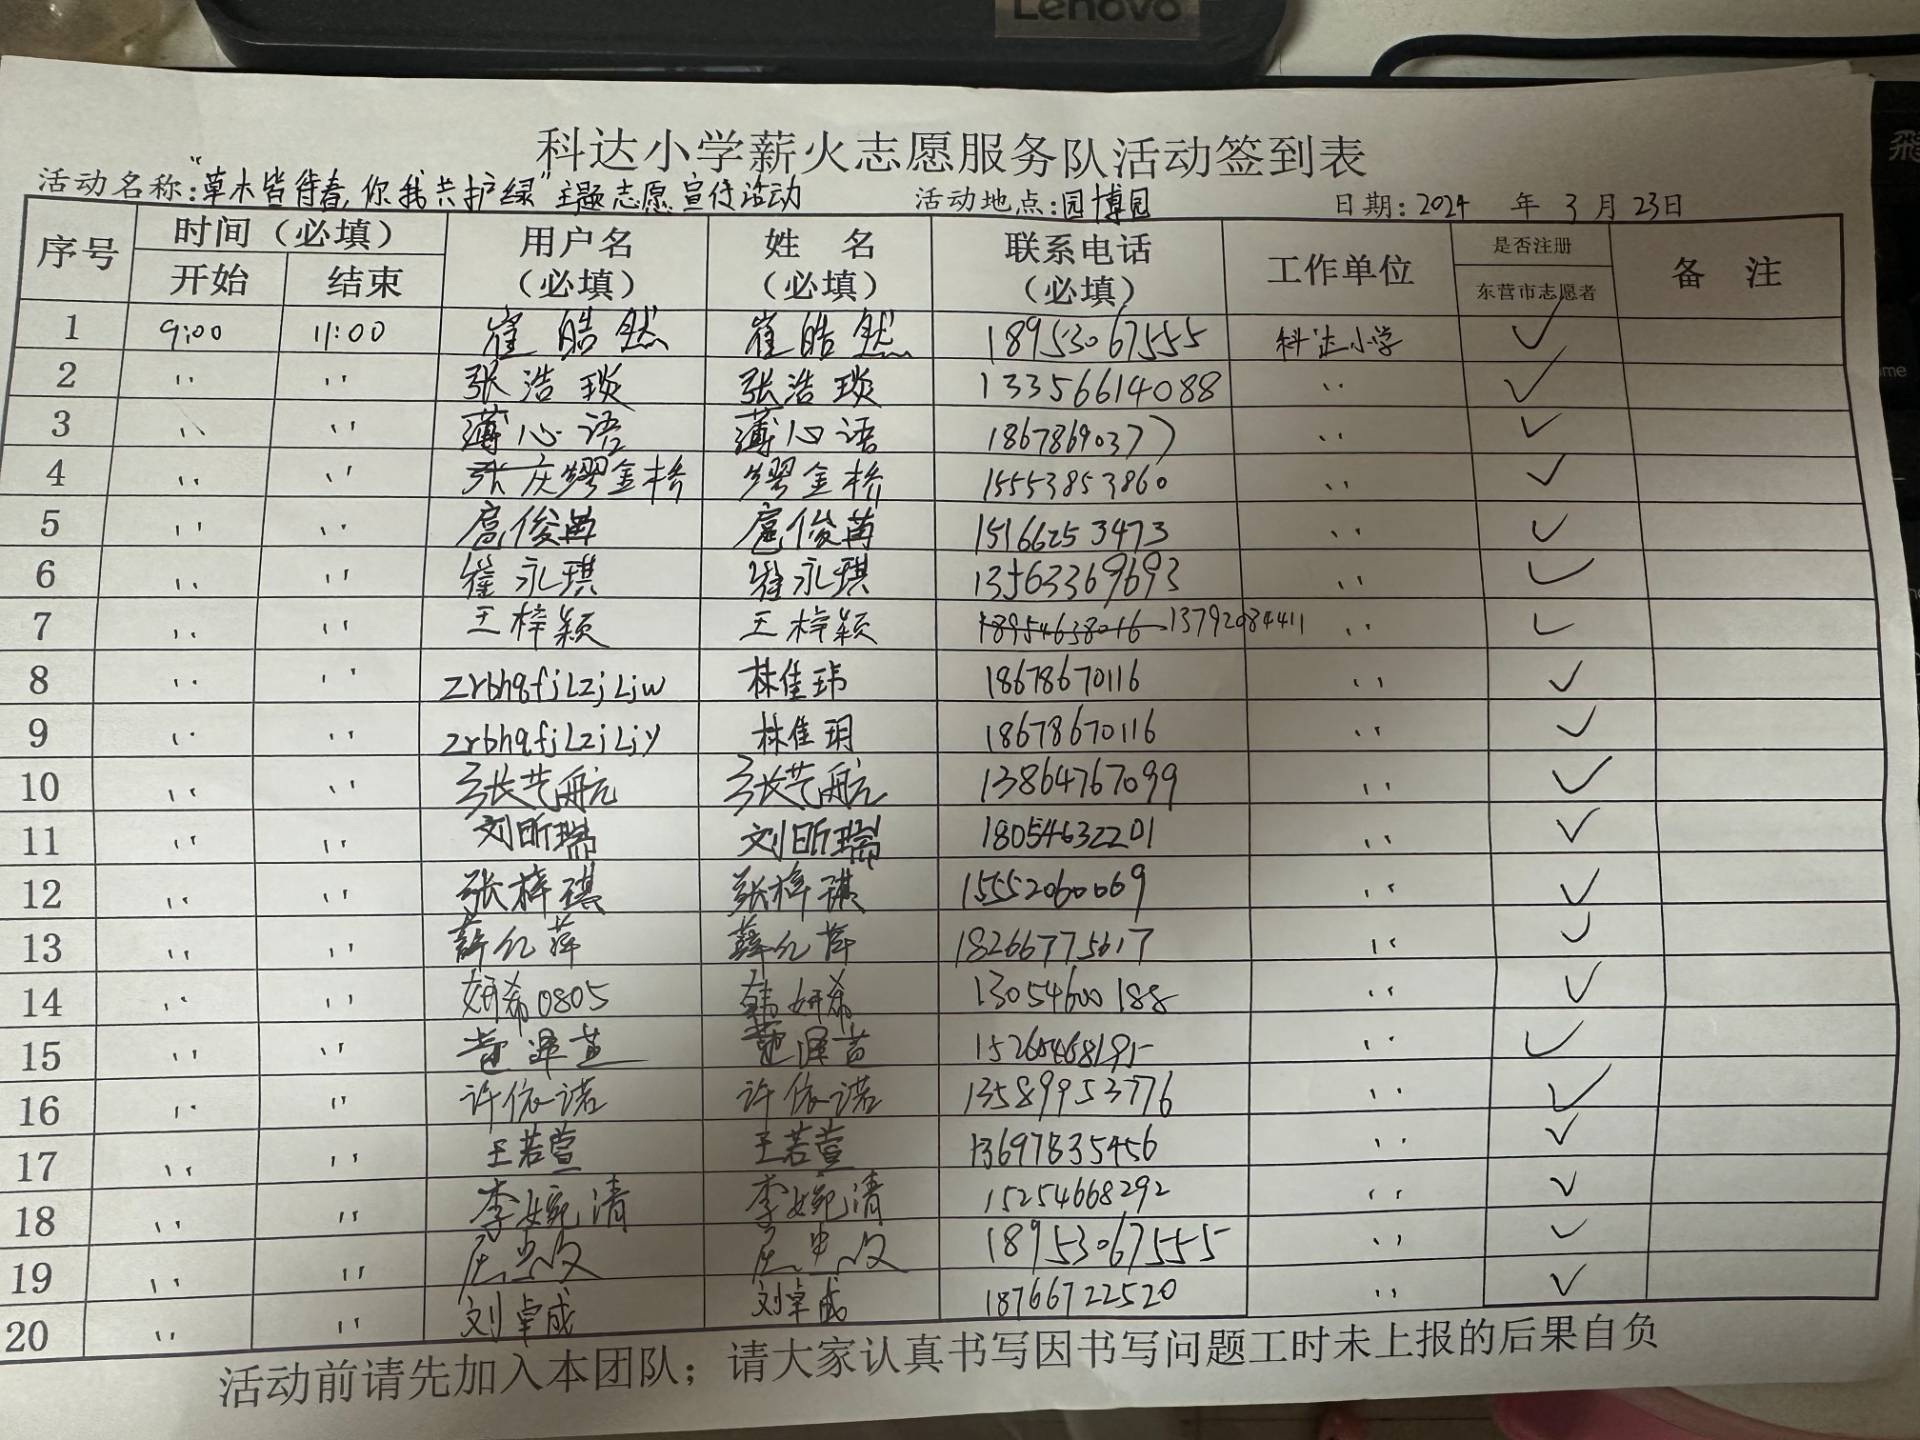 Lenovo
科达小学薪火志愿服务队活动签到表
活动名称:“草木皆待春,你我共护绿”主题志愿宣传活动 活动地点:园博园 日期:2024 年 3 月 23日
序号 时间(必填) 用户名 姓 名 联系电话 工作单位 是否注册 备 注
开始 结束 (必填) (必填) (必填) 东营市志愿者
1 9:00 11:00 崔皓然 崔皓然 18953067555 科达小学 ✓
2 〃 〃 张浩琰 张浩琰 13356614088 〃 ✓
3 〃 〃 薄心语 薄心语 18678690377 〃 ✓
4 〃 〃 张庆缪金桥 缪金桥 15553853860 〃 ✓
5 〃 〃 扈俊苒 扈俊苒 15166253473 〃 ✓
6 〃 〃 崔永琪 崔永琪 13563369693 〃 ✓
7 〃 〃 王梓颖 王梓颖 18954638016 13792084411 〃 ✓
8 〃 〃 zrbhqfjLzjLjw 林佳玮 18678670116 〃 ✓
9 〃 〃 zrbhqfjLzjLjy 林佳玥 18678670116 〃 ✓
10 〃 〃 张艺航 张艺航 13864767099 〃 ✓
11 〃 〃 刘昕瑞 刘昕瑞 18054632201 〃 ✓
12 〃 〃 张梓祺 张梓祺 15552060069 〃 ✓
13 〃 〃 薛亿萍 薛亿萍 18266775617 〃 ✓
14 〃 〃 妍希0805 韩妍希 13054600188 〃 ✓
15 〃 〃 15260468195 〃 ✓
16 〃 〃 许依诺 许依诺 13589953776 〃 ✓
17 〃 〃 王若萱 王若萱 13697835456 〃 ✓
18 〃 〃 李婉清 李婉清 15254668292 〃 ✓
19 〃 〃 18953067555 〃 ✓
20 〃 〃 刘卓成 刘卓成 18766722520 〃 ✓
活动前请先加入本团队；请大家认真书写因书写问题工时未上报的后果自负